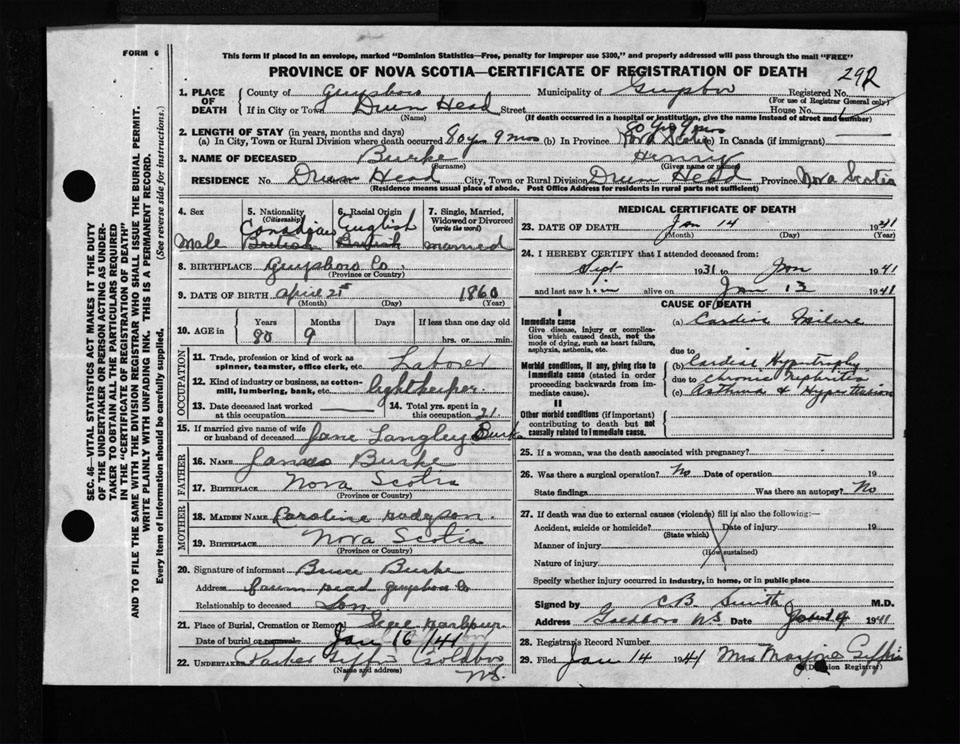 FORM 6
This form if placed in an envelope, marked "Dominion Statistics—Free, penalty for improper use $300," and properly addressed will pass through the mail "FREE"
PROVINCE OF NOVA SCOTIA—CERTIFICATE OF REGISTRATION OF DEATH
292
1. PLACE OF DEATH County of Guysboro Municipality of Guysboro Registered No.
(For use of Registrar General only)
If in City or Town Drum Head Street House No.
(Name) (If death occurred in a hospital or institution, give the name instead of street and number)
2. LENGTH OF STAY (in years, months and days)
80 yrs 9 mos
(a) In City, Town or Rural Division where death occurred 80 yrs 9 mos (b) In Province Nova Scotia (c) In Canada (if immigrant)
3. NAME OF DECEASED Burke Henry
(Surname) (Given name or names)
RESIDENCE No. Drum Head City, Town or Rural Division Drum Head Province Nova Scotia
(Residence means usual place of abode. Post Office Address for residents in rural parts not sufficient)
4. Sex 5. Nationality (Citizenship) 6. Racial Origin 7. Single, Married, Widowed or Divorced (write the word)
Canadian English
Male British British married
8. BIRTHPLACE Guysboro Co.
(Province or Country)
9. DATE OF BIRTH April 1860
(Month) (Day) (Year)
10. AGE in Years Months Days If less than one day old
80 9 hrs. or min.
OCCUPATION
11. Trade, profession or kind of work as spinner, teamster, office clerk, etc. Laborer
12. Kind of industry or business, as cotton-mill, lumbering, bank, etc. lightkeeper.
13. Date deceased last worked at this occupation 14. Total yrs. spent in this occupation 21
15. If married give name of wife or husband of deceased Jane Langley Burke
FATHER
16. NAME James Burke
17. BIRTHPLACE Nova Scotia
(Province or Country)
MOTHER
18. MAIDEN NAME Caroline Hodgson
19. BIRTHPLACE Nova Scotia
(Province or Country)
20. Signature of informant Bruce Burke
Address Head Guysboro Co
Relationship to deceased Son
21. Place of Burial, Cremation or Removal Harbour
Date of burial or removal Jan 16 / 41
22. UNDERTAKER Parker Giffin Goldboro
(Name and address) N.S.
MEDICAL CERTIFICATE OF DEATH
23. DATE OF DEATH Jan 14 1941
(Month) (Day) (Year)
24. I HEREBY CERTIFY that I attended deceased from:
Sept 1931 to Jan 1941
and last saw him alive on Jan 13 1941
CAUSE OF DEATH
I
Immediate cause
Give disease, injury or complication which caused death, not the mode of dying, such as heart failure, asphyxia, asthenia, etc.
(a) Cardiac Failure
due to
Morbid conditions, if any, giving rise to immediate cause (stated in order proceeding backwards from immediate cause).
(b) Cardiac Hypertrophy
due to Chronic Nephritis
(c) Asthma & Hypertension
II
Other morbid conditions (if important) contributing to death but not causally related to immediate cause.
25. If a woman, was the death associated with pregnancy?
26. Was there a surgical operation? No Date of operation 19
State findings Was there an autopsy? No
27. If death was due to external causes (violence) fill in also the following:—
Accident, suicide or homicide? Date of injury 19
(State which)
Manner of injury
(How sustained)
Nature of injury
Specify whether injury occurred in industry, in home, or in public place
Signed by C B Smith M.D.
Address Goldboro NS Date 1941
28. Registrar's Record Number
29. Filed Jan 14 1941 Mrs Marjorie Giffin
(Division Registrar)
SEC. 46—VITAL STATISTICS ACT MAKES IT THE DUTY
OF THE UNDERTAKER OR PERSON ACTING AS UNDER-
TAKER TO OBTAIN ALL THE PARTICULARS REQUIRED
IN THE "CERTIFICATE OF REGISTRATION OF DEATH"
AND TO FILE THE SAME WITH THE DIVISION REGISTRAR WHO SHALL ISSUE THE BURIAL PERMIT.
WRITE PLAINLY WITH UNFADING INK. THIS IS A PERMANENT RECORD.
Every item of information should be carefully supplied. (See reverse side for instructions.)